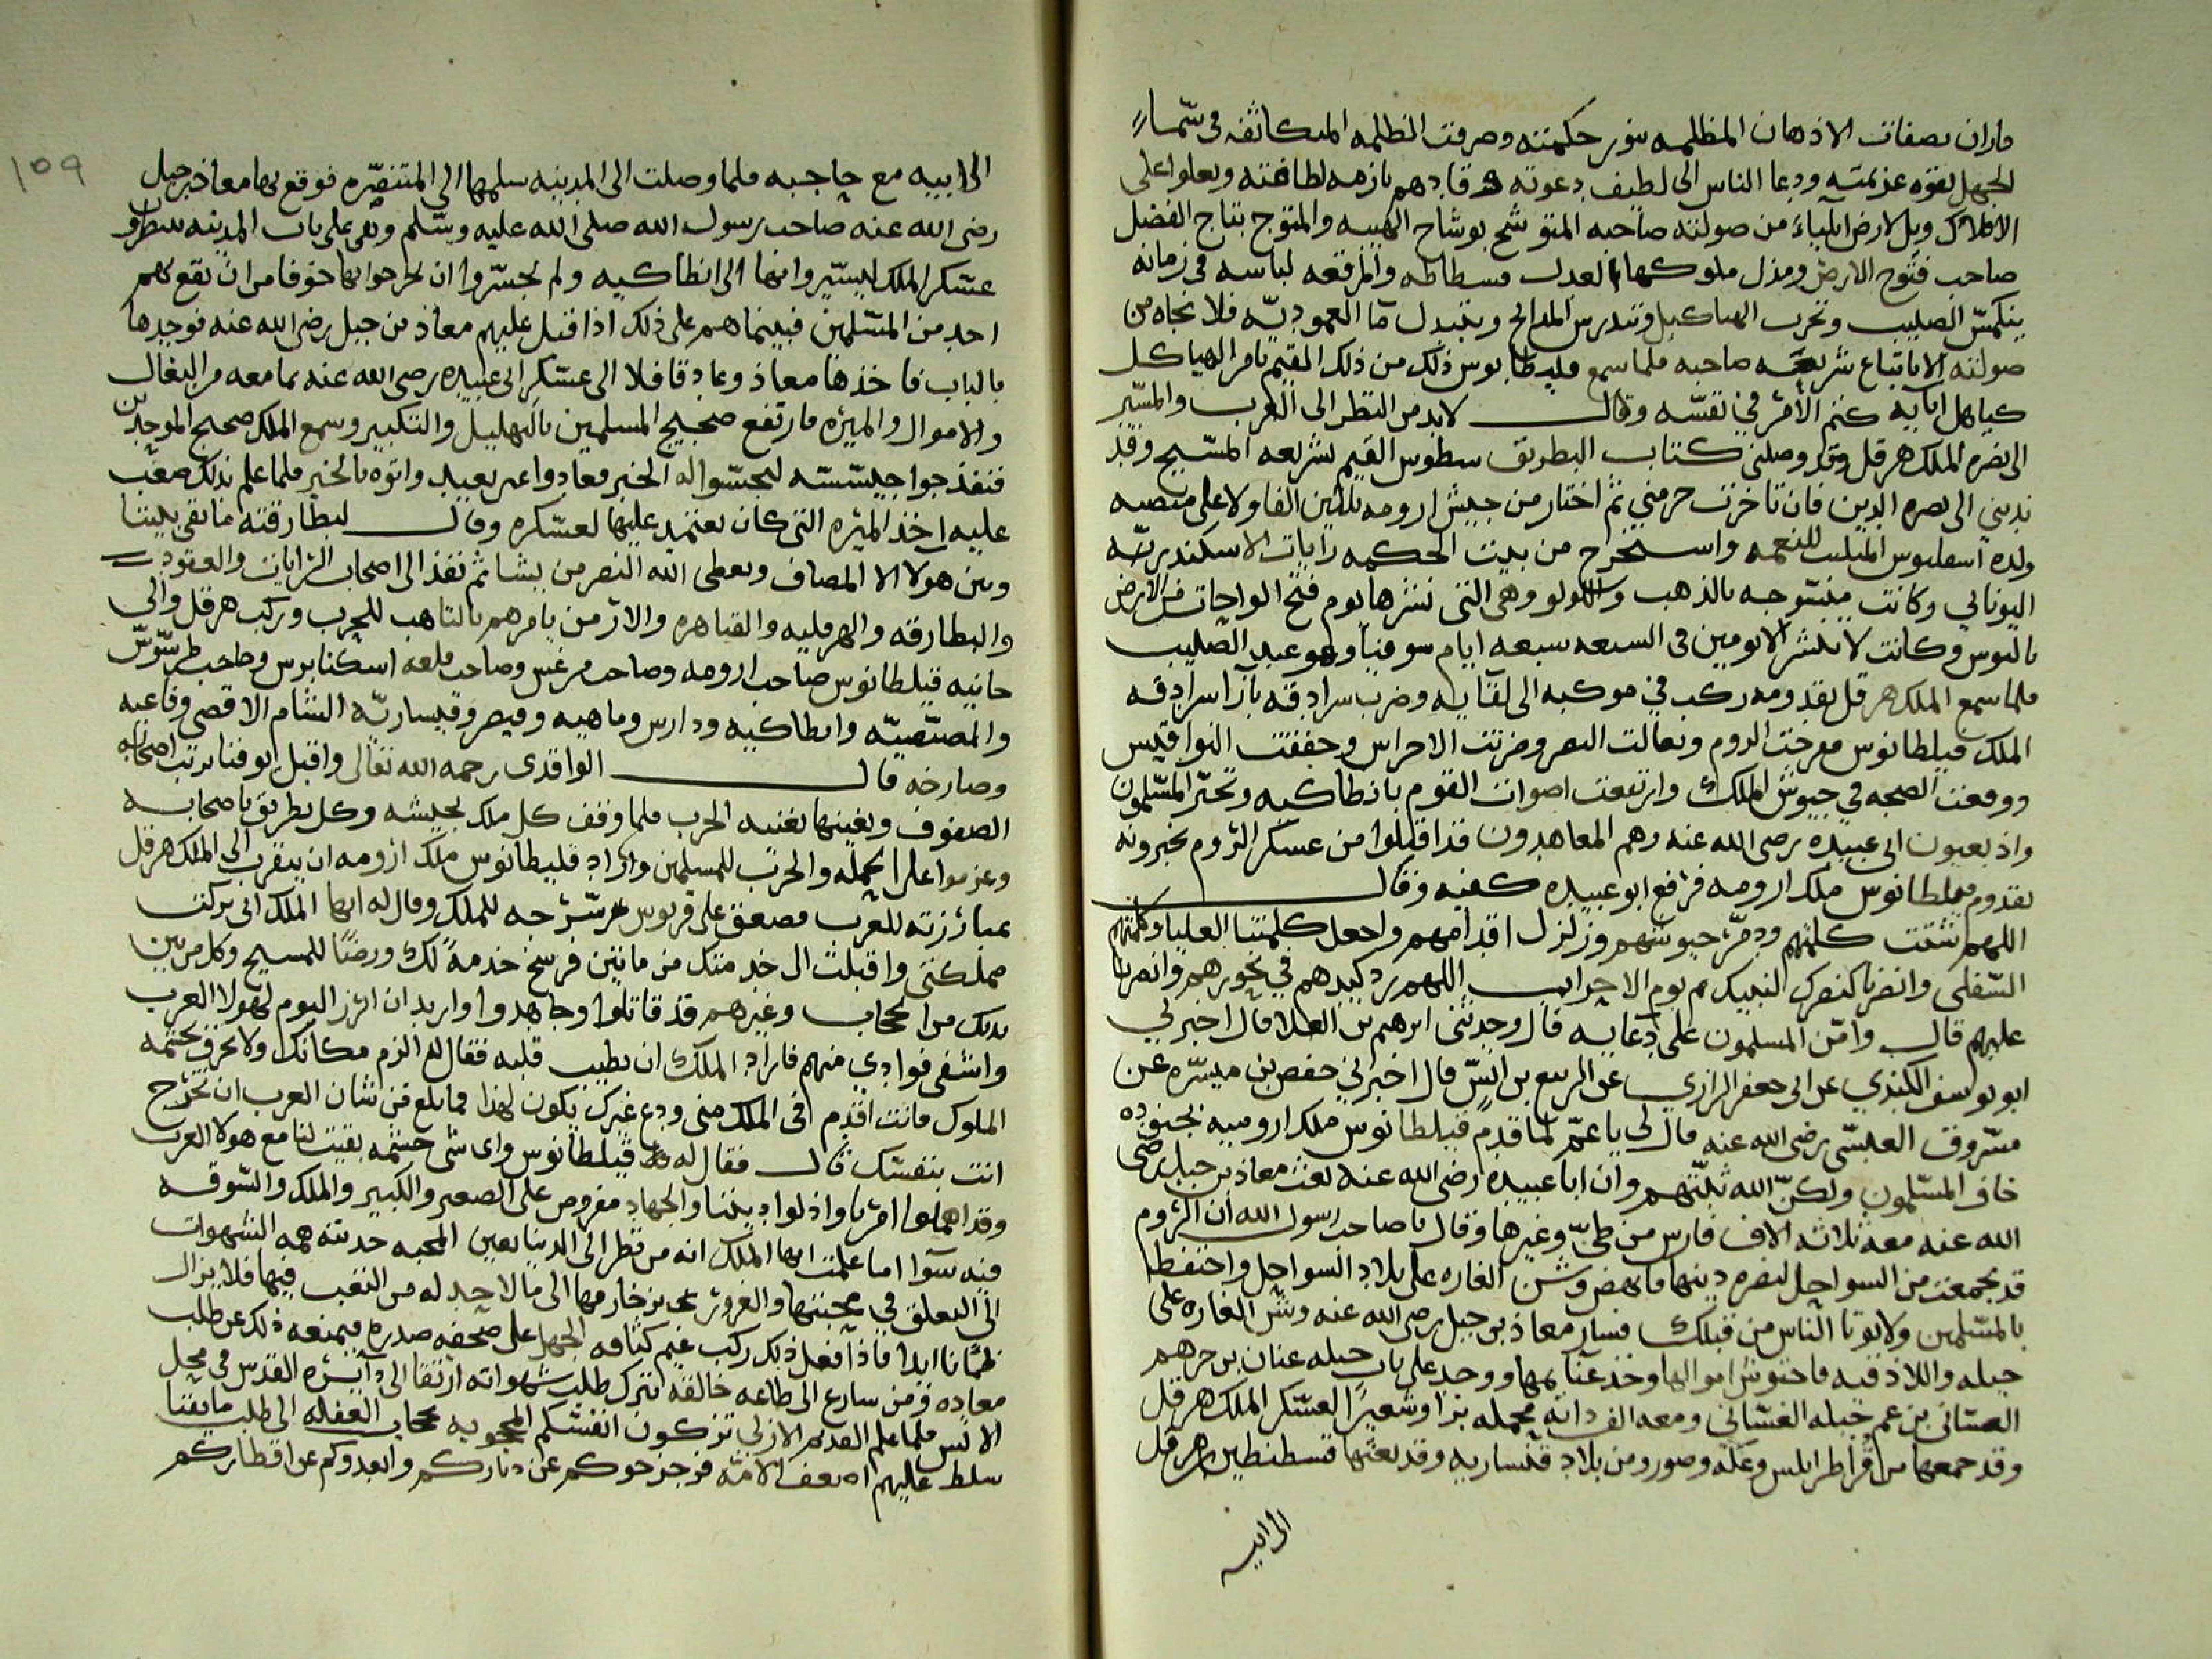 فاران بصفات الاذهان المظلمه بنور حكمته وصرفت الظلمه المتكاثفه فى سماء
الجهل بقوه عزيمته ودعا الناس الى لطيف دعوته وقادهم بازمه لطافته ويعلوا على
الافلاك ويل لارض ايلياء من صولته صاحبه المتوشح بوشاح الهيبه والمتوج بتاج الفضل
صاحب فتوح الارض ومذل ملوكها العدل فسطاطه والمرقعه لباسه فى زمانه
ينكس الصليب وتخرب الهياكل وتندرس المذابح ويتبدل ماء العموديّه فلا نجاه من
صولته الا باتباع شريعه صاحبه فلما سمع فليطانوس ذلك من ذلك القيم بامر الهياكل
كتم الأمر في نفسه وقال لابد من النظر الى العرب والمسير
الى نصره الملك هرقل وقد وصلنى كتاب البطريق سطوس القيم بشريعه المسيح وقد
ندبني الى نصره الدين فان تاخرت حرمني ثم اختار من جيش ارومه ثلاثين الفا وولا على منصبه
ولده اسفليوس واستخرج من بيت الحكمه رايات الاسكندريّه
اليوناني وكانت منسوجه بالذهب واللولو وهى التى نشرها يوم فتح الواحات من الارض
وكانت لا تنشر الا يومين فى السبعه سبعه ايام وهو عيد الصليب
فلما سمع الملك هرقل بقدومه ركب في موكبه الى لقايه وضرب سرادقه بازا سرادقه
الملك فيلطانوس فرجت الروم وضربت الاجراس وخفقت النواقيس
ووقعت الضجه في جيوش الملك وارتفعت اصوات القوم بانطاكيه وتحيّر المسلمون
واذ بعيون ابى عبيده رضى الله عنه وهم المعاهدون قد اقبلوا من عسكر الروم يخبرونه
بقدوم فيلطانوس ملك ارومه فرفع ابو عبيده كفيه وقال
اللهم شتت كلمتهم ودمّر جيوشهم وزلزل اقدامهم واجعل كلمتنا العليا وكلمتهم
السفلى وانصرنا كنصرك لنبيك يوم الاحزاب اللهم رد كيدهم في نحورهم وانصرنا
عليهم قال وامّن المسلمون على دعايه قال وحدثنى ابرهيم بن العلا قال اخبرني
ابو يوسف الكندي عن ابى جعفر الرازي عن الربيع بن انس قال اخبرني حفص بن ميسره عن
مسروق العبسى رضى الله عنه قال لى يا عمّ لما قدم فيلطانوس ملك اروميه بجنوده
خاف المسلمون ولكن الله ثبّتهم وان ابا عبيده رضى الله عنه بعث معاذ بن جبل رضى
الله عنه معه ثلاثه الاف فارس من طىّ وغيرها وقال يا صاحب رسول الله ان الروم
قد تجمعت من السواحل لنصره دينها فانهض وشن الغاره على بلاد السواحل واحتفظ
بالمسلمين ولا يوتا الناس من قبلك فسار معاذ بن جبل رضى الله عنه وشن الغاره على
جبله واللاذقيه فاحتوش اموالها وخذ غنايمها ووجد على باب جبله عنان بن جرهم
الغسانى بن عم جبله الغسّانى ومعه الف دابه محمله برا وشعيرا لعسكر الملك هرقل
وقد جمعها من اقرا طرابلس وعكه وصور ومن بلاد قيساريه وقد بعثها قسطنطين بن هرقل
الى ابيه
١٥٩
الى ابيه مع حاجبه فلما وصلت الى المدينه سلمها الى المتنصّره فوقع بها معاذ بن جبل
رضى الله عنه صاحب رسول الله صلى الله عليه وسلم وبقى على باب المدينه ينتظرون
عسكر الملك ليسيروا بها الى انطاكيه ولم يجسروا ان يخرجوا بها خوفا من ان يقع بهم
احد من المسلمين فبينما هم على ذلك اذ اقبل عليهم معاذ بن جبل رضى الله عنه فوجدها
بالباب فاخذها معاذ وعاد قافلا الى عسكر ابى عبيده رضى الله عنه بما معه من البغال
والاموال والميره فارتفع ضجيج المسلمين بالتهليل والتكبير وسمع الملك ضجيج الموحدين
فنفذ جواسيسه ليجسوا له الخبر فعادوا عن بعيد واتوه بالخبر فلما علم بذلك صعب
عليه اخذ الميره التى كان يعتمد عليها لعسكره وقال لبطارقته ما بقى بيننا
وبين هولا الا المصاف ويعطى الله النصر من يشا ثم نفذ الى اصحاب الرايات والعقود
والبطارقه والهرقليه والقياهره والارمن يامرهم بالتاهب للحرب وركب هرقل والى
جانبه فيلطانوس صاحب ارومه وصاحب مرعش وصاحب قلعه اسكنابرس وصاحب طرسوس
والمصّيصيّه وانطاكيه ودارس وماهيه وقيصر وقيساريّه الشام الاقصى وقاعيه
وصارخه قال الواقدى رحمه الله تعالى واقبل ابو فنا يرتب اصحابه
الصفوف ويعينها بغنيه الحرب فلما وقف كل ملك بجيشه وكل بطريق باصحابه
وعزموا على الحمله والحرب للمسلمين واراد فليطانوس ملك ارومه ان يتقرب الى الملك هرقل
بمبارزته للعرب فصعق على قربوس سرجه للملك وقال له ايها الملك انى تركت
مملكتى واقبلت الى خدمتك من ماتين فرسخ خدمة لك ورضًا للمسيح وكل من بين
يديك من الحجاب وغيرهم قد قاتلوا وجاهدوا واريد ان ابرز اليوم لهولا العرب
واشفى فوادي منهم فاراد الملك ان يطيب قلبه فقال له الزم مكانك ولا تخرق حشمه
الملوك فانت اقدم فى الملك منى ودع غيرك يكون لهذا فما بلغ من شان العرب ان تخرج
انت بنفسك قال فقال له فيلطانوس واى شى حشمه بقيت لنا مع هولا العرب
وقد اهملوا امرنا واذلوا ديننا والجهاد مفروض على الصغير والكبير والملك والسّوقه
فيه سوا اما علمت ايها الملك انه من نظر الى الدنيا بعين المحبه جذبته همه الشهوات
الى التعلق في محبتها والغرور بزخارفها الى ما لا حد له من التعب فيها فلا يزال
ظمانا ابدا فاذا فعل ذلك ركب غيم كثافه الجهل على صحفه صدره فيمنعه ذلك عن طلب
معاده فمن سارع الى طاعه خالقه بترك طلب شهواته ارتقا الى دائره القدس في محل
الانس فلما علم القديم الازلي تركون انفسكم المحجوبه بحجاب الغفله الى طلب ما يفنا
سلط عليهم اضعف الامه فزحزحوكم عن دياركم وابعدوكم عن اقطاركم